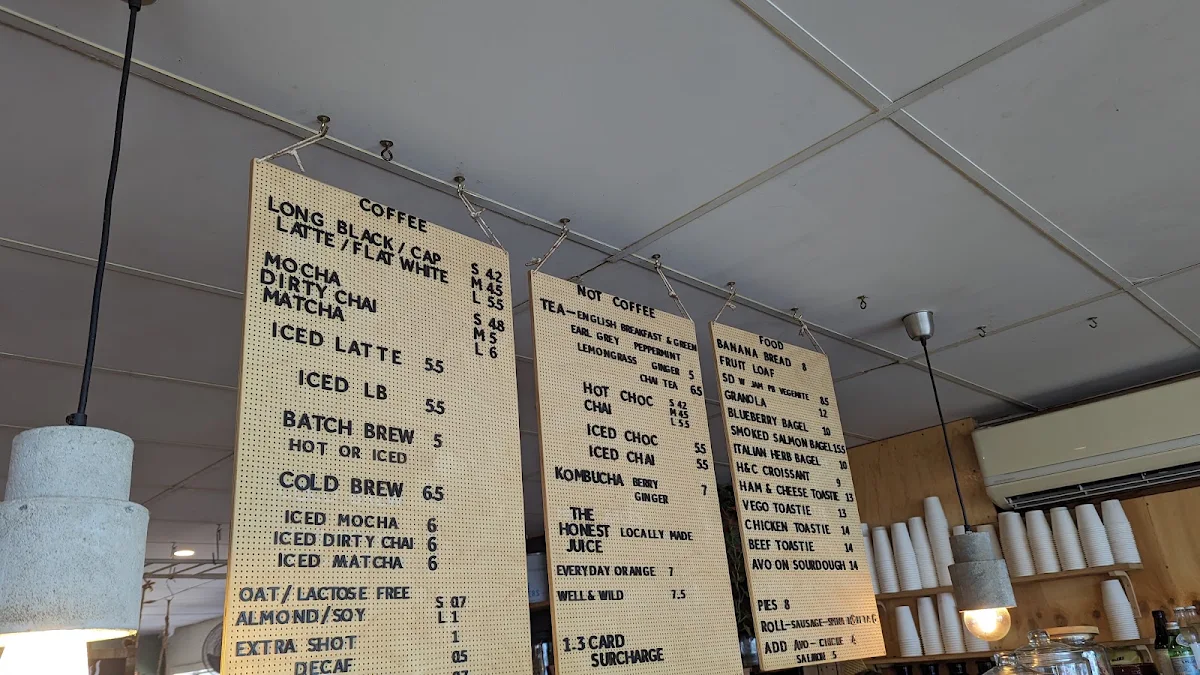 COFFEE
LONG BLACK / CAP
LATTE / FLAT WHITE S 4.2
M 4.5
L 5.5
MOCHA
DIRTY CHAI
MATCHA S 4.8
M 5
L 6
ICED LATTE 5.5
ICED LB 5.5
BATCH BREW 5
HOT OR ICED
COLD BREW 6.5
ICED MOCHA 6
ICED DIRTY CHAI 6
ICED MATCHA 6
OAT / LACTOSE FREE S 0.7
ALMOND/SOY L 1
EXTRA SHOT 1
DECAF 0.5
NOT COFFEE
TEA-ENGLISH BREAKFAST & GREEN
EARL GREY PEPPERMINT
LEMONGRASS GINGER 5
CHAI TEA 6.5
HOT CHOC S 4.2
CHAI M 4.5
L 5.5
ICED CHOC 5.5
ICED CHAI 5.5
KOMBUCHA BERRY 7
GINGER
THE
HONEST LOCALLY MADE
JUICE
EVERYDAY ORANGE 7
WELL & WILD 7.5
1.3 CARD
SURCHARGE
FOOD
BANANA BREAD 8
FRUIT LOAF
SD W JAM PB VEGEMITE 8.5
GRANOLA 12
BLUEBERRY BAGEL 10
SMOKED SALMON BAGEL 15.5
ITALIAN HERB BAGEL 10
H&C CROISSANT 9
HAM & CHEESE TOASTIE 13
VEGO TOASTIE 13
CHICKEN TOASTIE 14
BEEF TOASTIE 14
AVO ON SOURDOUGH 14
PIES 8
ROLL-SAUSAGE-
ADD AVO- 4
SALMON 5